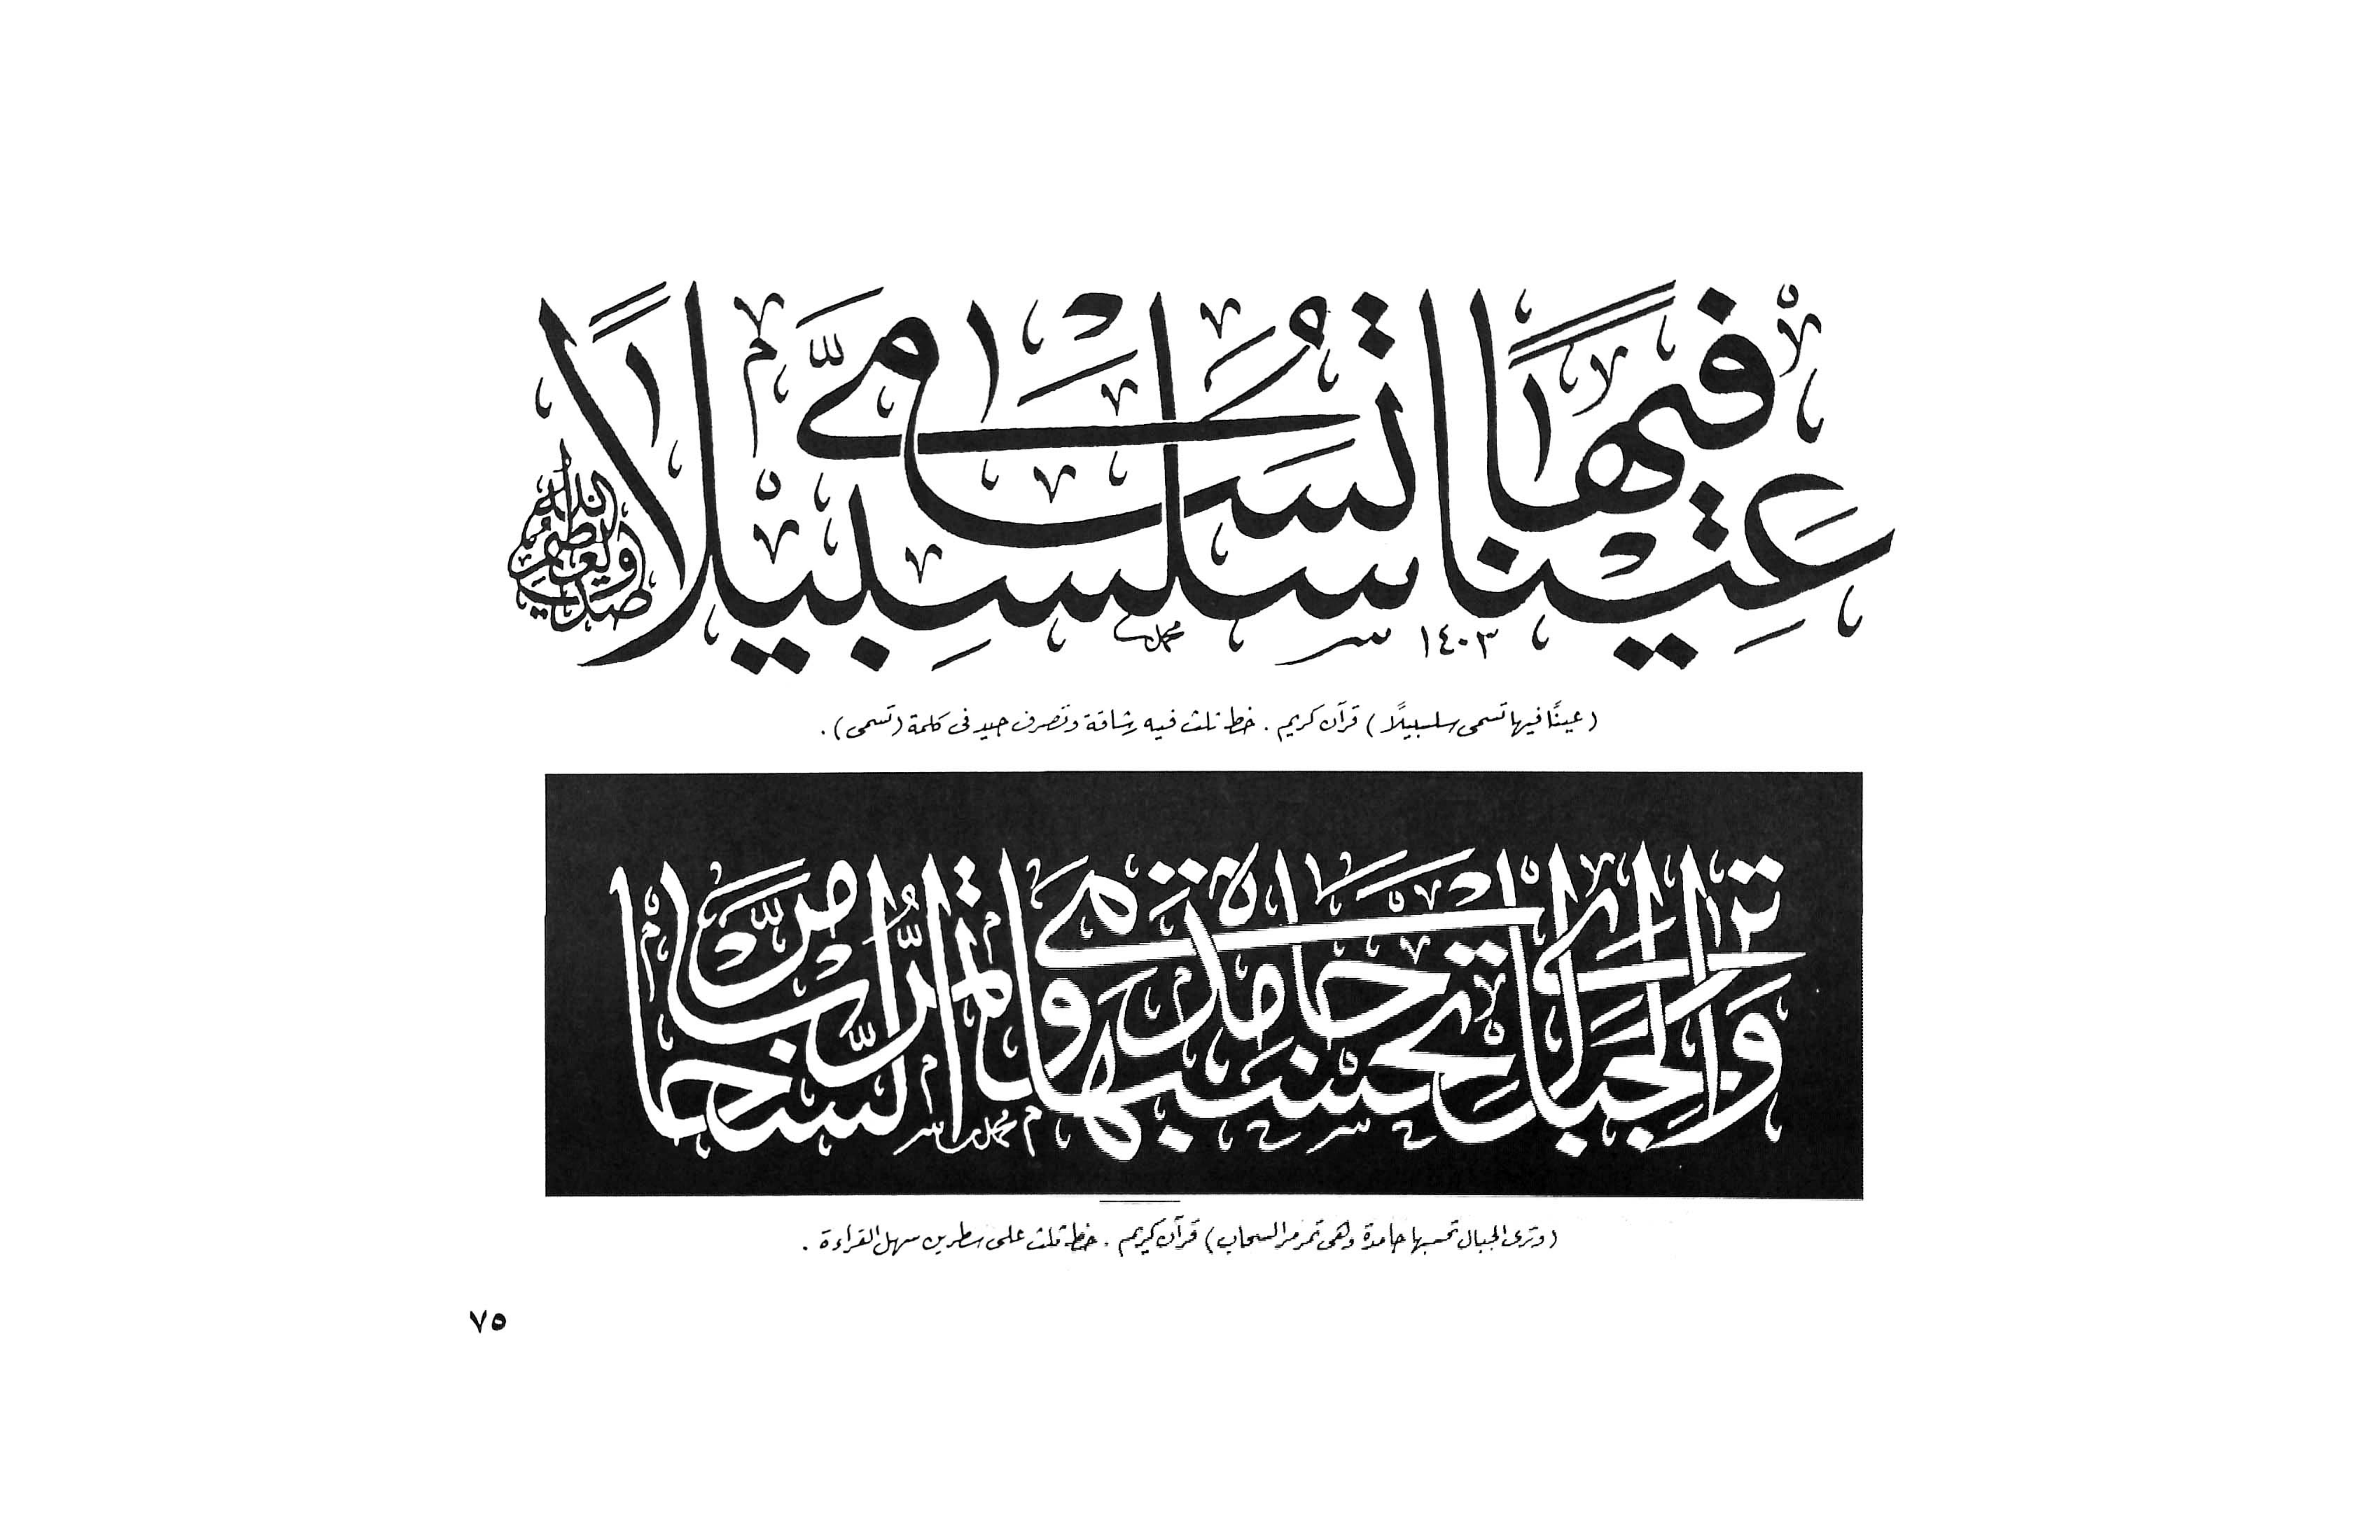 عَيْنًا فِيهَا تُسَمَّى سَلْسَبِيلًا
صدق الله العظيم
محمد
١٤٠٣
(عينًا فيها تسمى سلسبيلًا) قرآن كريم . خط ثلث فيه رشاقة وتصرف جيد فى كلمة (تسمى) .
وَتَرَى الْجِبَالَ تَحْسَبُهَا جَامِدَةً وَهِيَ تَمُرُّ مَرَّ السَّحَابِ
محمد
(وترى الجبال تحسبها جامدة وهى تمر مر السحاب) قرآن كريم . خط ثلث على سطرين سهل القراءة .
٧٥